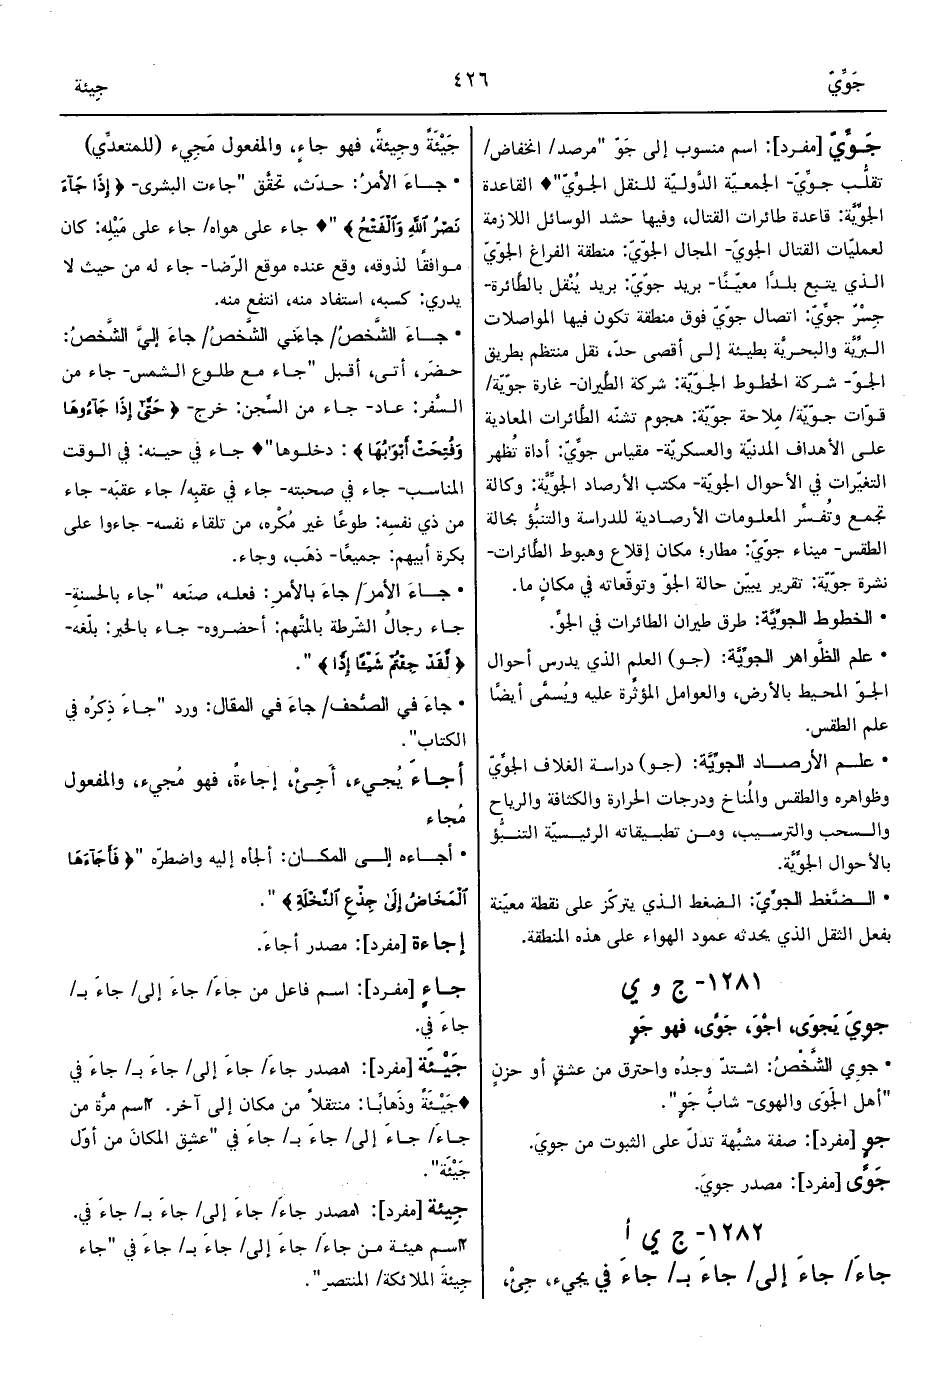 جَوِّيّ
٤٢٦
جِيئة
جَــوِّيّ [مفـرد]: اسم منسوب إلى جَوّ "مرصد/ انخفاض/
تقلُّب جوّيّ- الجمعيّة الدَّوليّة للنقل الجوّيّ"♦ القاعدة
الجوّيَّة: قاعدة طائرات القتال، وفيها حشد الوسائل اللازمة
لعمليّات القتال الجويّ- المجال الجوّيّ: منطقة الفراغ الجويّ
الـذي يتبع بلـدًا معيّـنًا- بريد جويّ: بريد يُنْقل بالطَّائرة-
جِسْرٌ جوِّيّ: اتصال جوّيّ فوق منطقة تكون فيها المواصلات
الـبرِّيَّة والبحريَّة بطيئة إلـى أقصى حدّ، نقل منتظم بطريق
الجوّ- شـركة الخطوط الجـويّة: شركة الطَّيران- غارة جوّيّة/
قـوّات جـويّة/ مِلاحة جوّيّة: هجوم تشنّه الطَّائرات المعادية
علـى الأهداف المدنيّة والعسكريّة- مقياس جوِّيّ: أداة تُظهر
التغيّرات في الأحوال الجوية- مكتب الأرصاد الجوِّيَّة: وكالة
تجمع وتُفسِّر المعلومات الأرصادية للدراسة والتنبُّؤ بحالة
الطقس- ميناء جوّيّ: مطار؛ مكان إقلاع وهبوط الطَّائرات-
نشرة جوّيّة: تقرير يبيّن حالة الجوّ وتوقّعاته في مكانٍ ما.
• الخطوط الجويَّة: طرق طيران الطائرات في الجوّ.
• علم الظَّواهر الجويَّة: (جـو) العلم الذي يدرس أحوال
الجوّ المحيط بالأرض، والعوامل المؤثِّرة عليه ويُسمَّى أيضًا
علم الطقس.
• علــم الأرصــاد الجويَّة: (جـو) دراسة الغلاف الجويّ
وظواهره والطقس والمُناخ ودرجات الحرارة والكثافة والرياح
والـسحب والترسيب، ومـن تطبـيقاته الرئيـسيّة التنـبُّؤ
بالأحوال الجويَّة.
• الـضَّغط الجويّ: الـضغط الـذي يتركّز على نقطة معيّنة
بفعل الثقل الذي يحدثه عمود الهواء على هذه المنطقة.
١٢٨١- ج و ي
جوِيَ يَجوَى، اجْوَ، جَوًى، فهو جَوٍ
• جوِي الشَّخْصُ: اشـتدّ وجدُه واحترق من عشقٍ أو حزنٍ
"أهل الجَوَى والهوى- شابٌّ جَوٍ".
جوٍ [مفرد]: صفة مشبَّهة تدلّ على الثبوت من جويَ.
جَوًى [مفرد]: مصدر جويَ.
١٢٨٢- ج ي أ
جاءَ/ جاءَ إلى/ جاءَ بـ/ جاءَ في يجيء، جِئْ،
جَيْئَةً وجيئةً، فهو جاءٍ، والمفعول مَجِيء (للمتعدِّي)
• جـاءَ الأمرُ: حدَث، تحقَّق "جاءت البشرى- ﴿ إِذَا جَآءَ
نَصْرُ ٱللَّهِ وَٱلْفَتْحُ ﴾ "♦ جاء على هواه/ جاء على مَيْلِه: كان
موافقًا لذوقه، وقع عنده موقع الرِّضا- جاء له من حيث لا
يدري: كسبه، استفاد منه، انتفع منه.
• جـاءَ الشَّخصُ/ جاءَني الشَّخصُ/ جاءَ إليَّ الشَّخصُ:
حضَر، أتى، أقبل "جـاء مـع طلـوع الـشمس- جاء من
السَّفر: عـاد- جـاء مـن السِّجن: خرج- ﴿ حَتَّىٰٓ إِذَا جَآءُوهَا
وَفُتِحَتْ أَبْوَٰبُهَا ﴾ : دخلـوها"♦ جـاء فـي حيـنه: في الـوقت
المناسـب- جاء في صحبته- جاء في عقبِه/ جاء عقبَه- جاء
من ذي نفسِه: طوعًا غير مُكْره، من تلقاء نفسه- جاءوا على
بكرة أبيهم: جميعًا- ذهَب، وجاء.
• جــاءَ الأمرَ/ جاءَ بـالأمرِ: فعلـه، صنَعه "جاء بـالحسنةِ-
جـاء رجالُ الشُّرطة بالمتَّهم: أحضروه- جـاء بـالخبر: بلّغه-
﴿ لَّقَدْ جِئْتُمْ شَيْـًٔا إِدًّا ﴾ ".
• جاءَ في الصَّحف/ جاءَ في المقال: ورد "جـاءَ ذِكرُه في
الكتاب".
أجـاءَ يُجيء، أَجِئْ، إجاءةً، فهو مُجيء، والمفعول
مُجاء
• أجـاءه إلـى المكـان: ألجأه إليه واضطرّه "﴿ فَأَجَآءَهَا
ٱلْمَخَاضُ إِلَىٰ جِذْعِ ٱلنَّخْلَةِ ﴾ ".
إجاءة [مفرد]: مصدر أجاءَ.
جــاءٍ [مفـرد]: اسـم فاعل من جاءَ/ جاءَ إلى/ جاءَ بـ/
جاءَ في.
جَيْــئَة [مفرد]: ١مصدر جاءَ/ جاءَ إلى/ جاءَ بـ/ جاءَ في
♦جَيْـئةً وذهابًـا: منتقلاً مـن مكان إلى آخر. ٢اسم مرَّة من
جـاءَ/ جـاءَ إلـى/ جاءَ بـ/ جاءَ في "عشِق المكانَ من أوّل
جَيْئَة".
جِيئة [مفرد]: ١مصدر جاءَ/ جاءَ إلى/ جاءَ بـ/ جاءَ في.
٢اسـم هيئة مـن جاءَ/ جاءَ إلى/ جاءَ بـ/ جاءَ في "جاء
جِيئةَ الملائكة/ المنتصر".